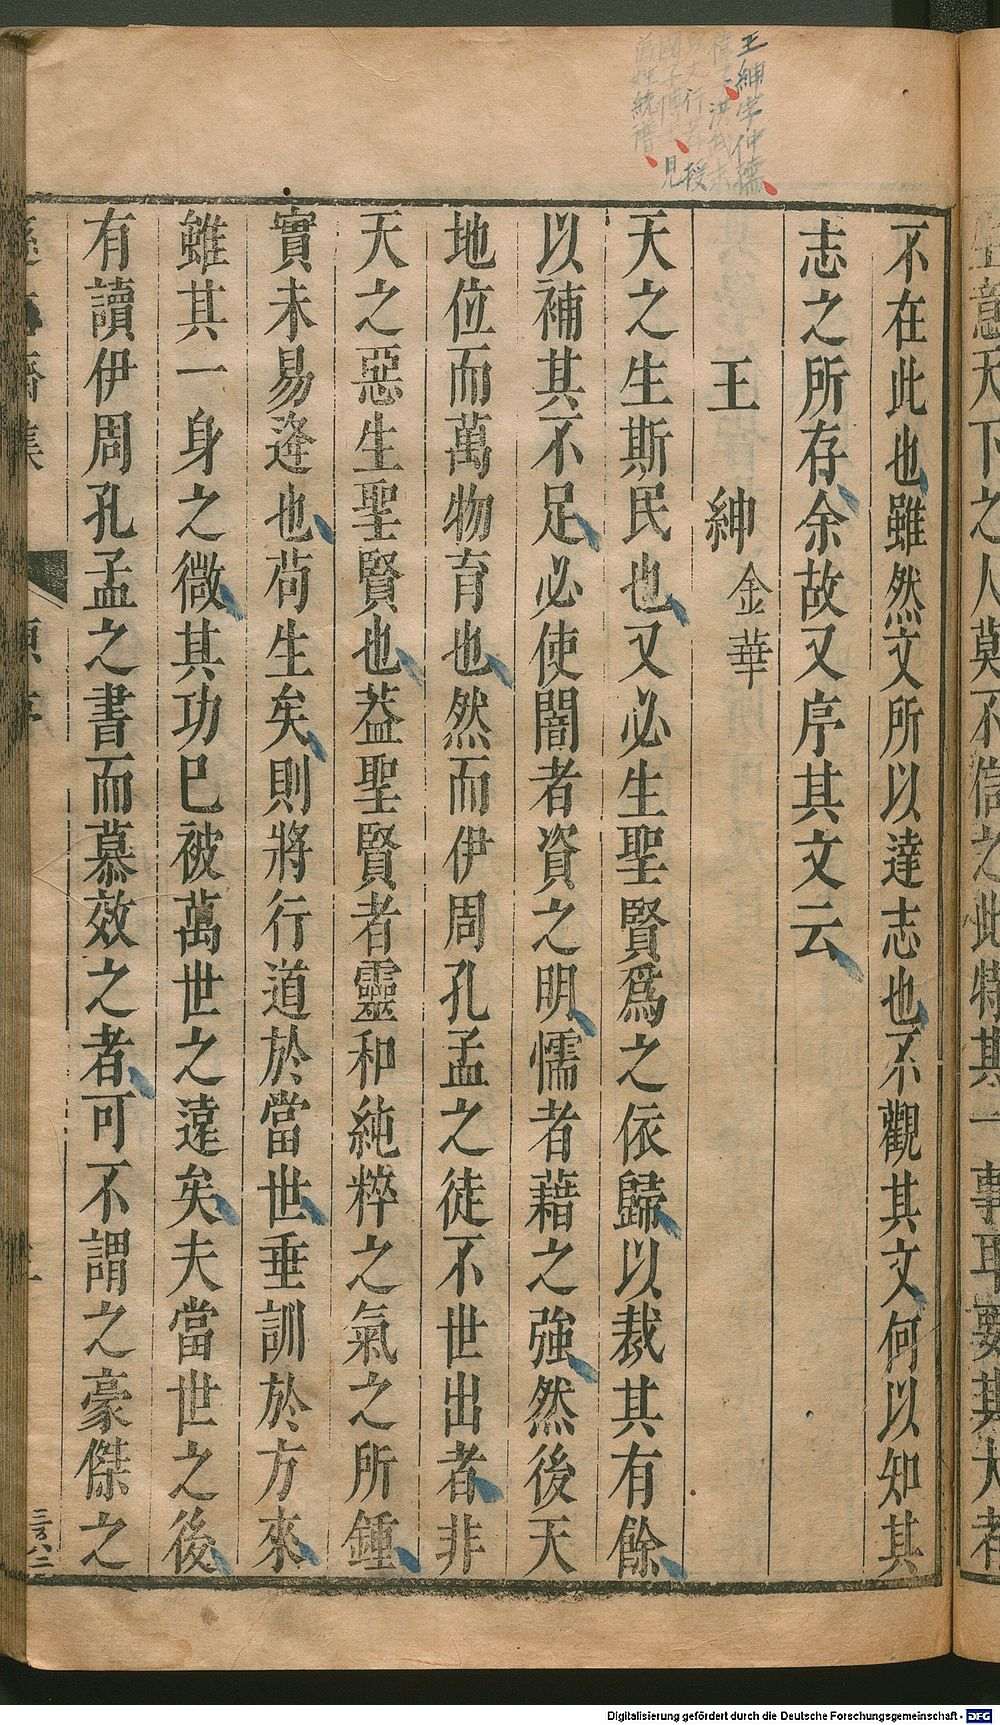 王紳字仲縉
不在此也雖然文所以達志也不觀其文何以知其
志之所存余故又序其文云
王紳 金華
天之生斯民也又必生聖賢爲之依歸以裁其有餘
以補其不足必使闇者資之明懦者藉之強然後天
地位而萬物育也然而伊周孔孟之徒不世出者非
天之惡生聖賢也葢聖賢者靈和純粹之氣之所鍾
實未易逢也苟生矣則將行道於當世垂訓於方來
雖其一身之微其功已被萬世之遠矣夫當世之後
有讀伊周孔孟之書而慕效之者可不謂之豪傑之
Digitalisierung gefördert durch die Deutsche Forschungsgemeinschaft - DFG